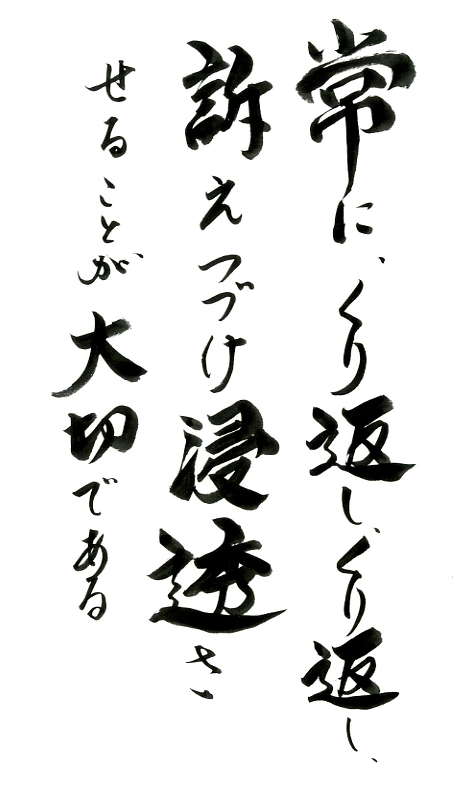 常に、くり返し、くり返し、
訴えつづけ浸透さ
せることが大切である